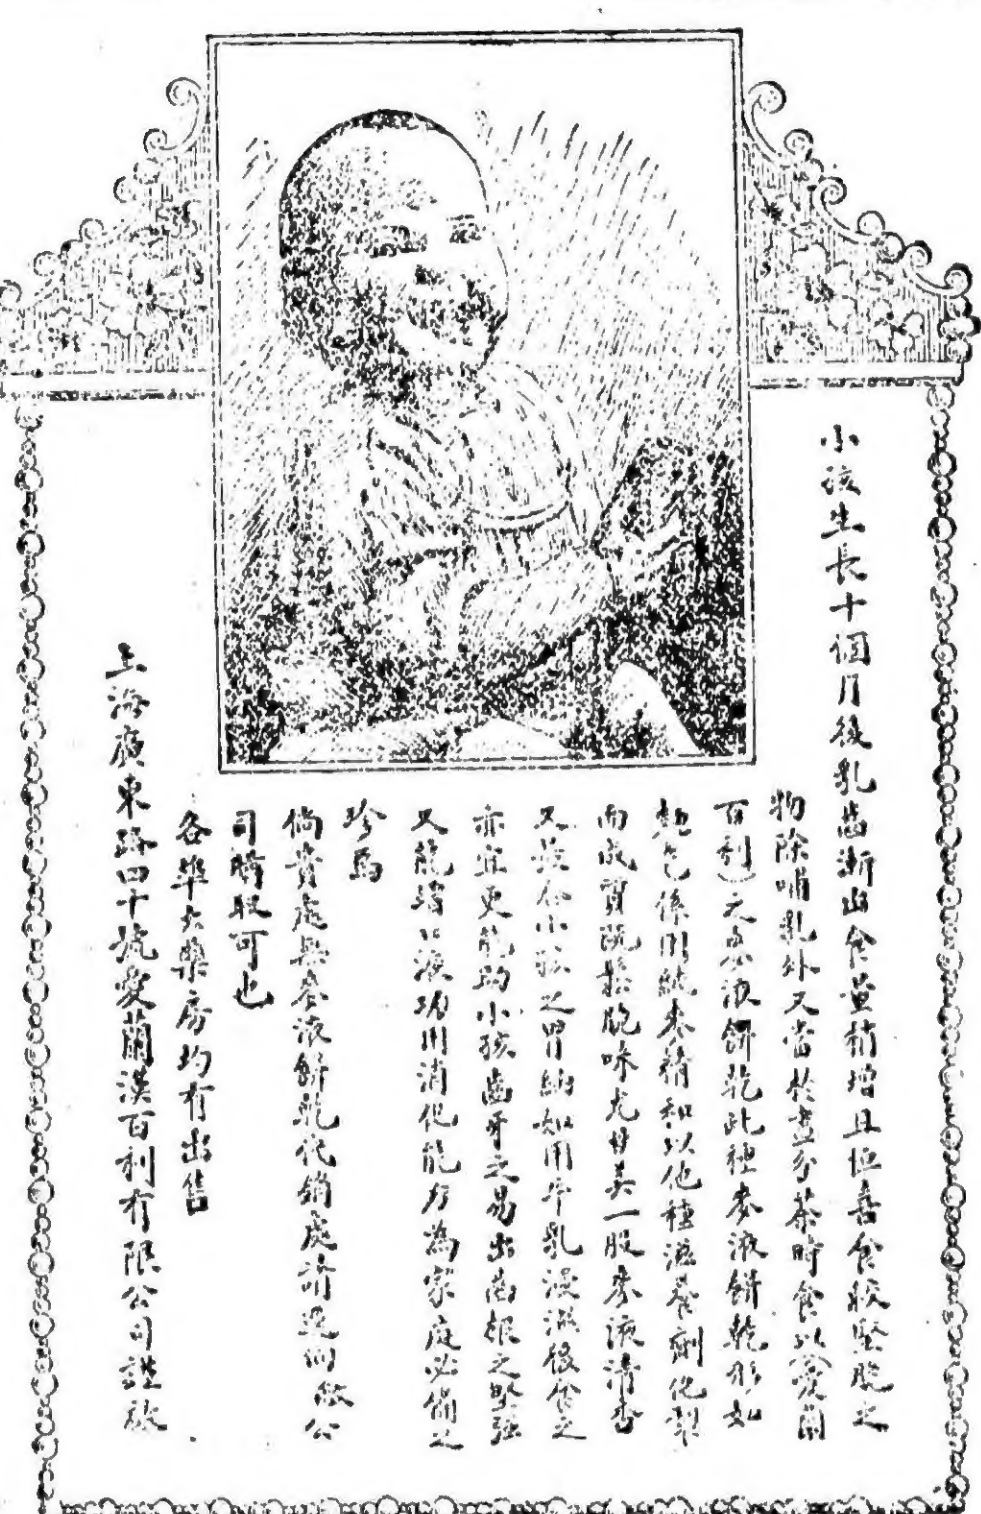 小孩生長十個月後乳齒漸出食量稍增且恒喜食較堅脆之
物除哺乳外又當於晝分茶時食以(愛蘭
百利)之麥液餅乾此種麥液餅乾形如
係用純麥精和以他種滋養劑化製
而成質既鬆脆味尤甘美一股麥液清香
又最合小孩之胃納如用牛乳浸濕後食之
亦宜更能助小孩齒牙之易出齒根之堅強
又能增口液功用消化能力為家庭必備之
珍品
倘貴處無麥液餅乾代銷處請逕向敝公
司購取可也
各埠大藥房均有出售
上海廣東路四十號愛蘭漢百利有限公司謹啟